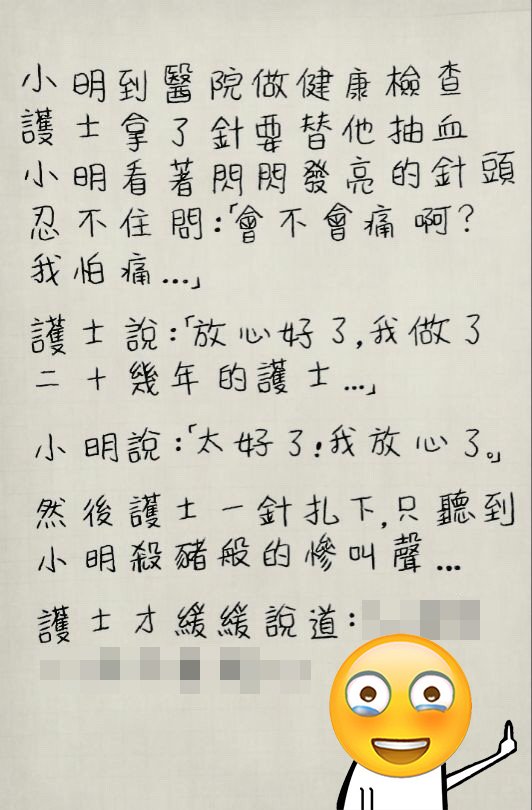 小明到醫院做健康檢查
護士拿了針要替他抽血
小明看著閃閃發亮的針頭
忍不住問:「會不會痛啊?
我怕痛...」
護士說:「放心好了,我做了
二十幾年的護士...」
小明說:「太好了!我放心了。」
然後護士一針扎下,只聽到
小明殺豬般的慘叫聲...
護士才緩緩說道: